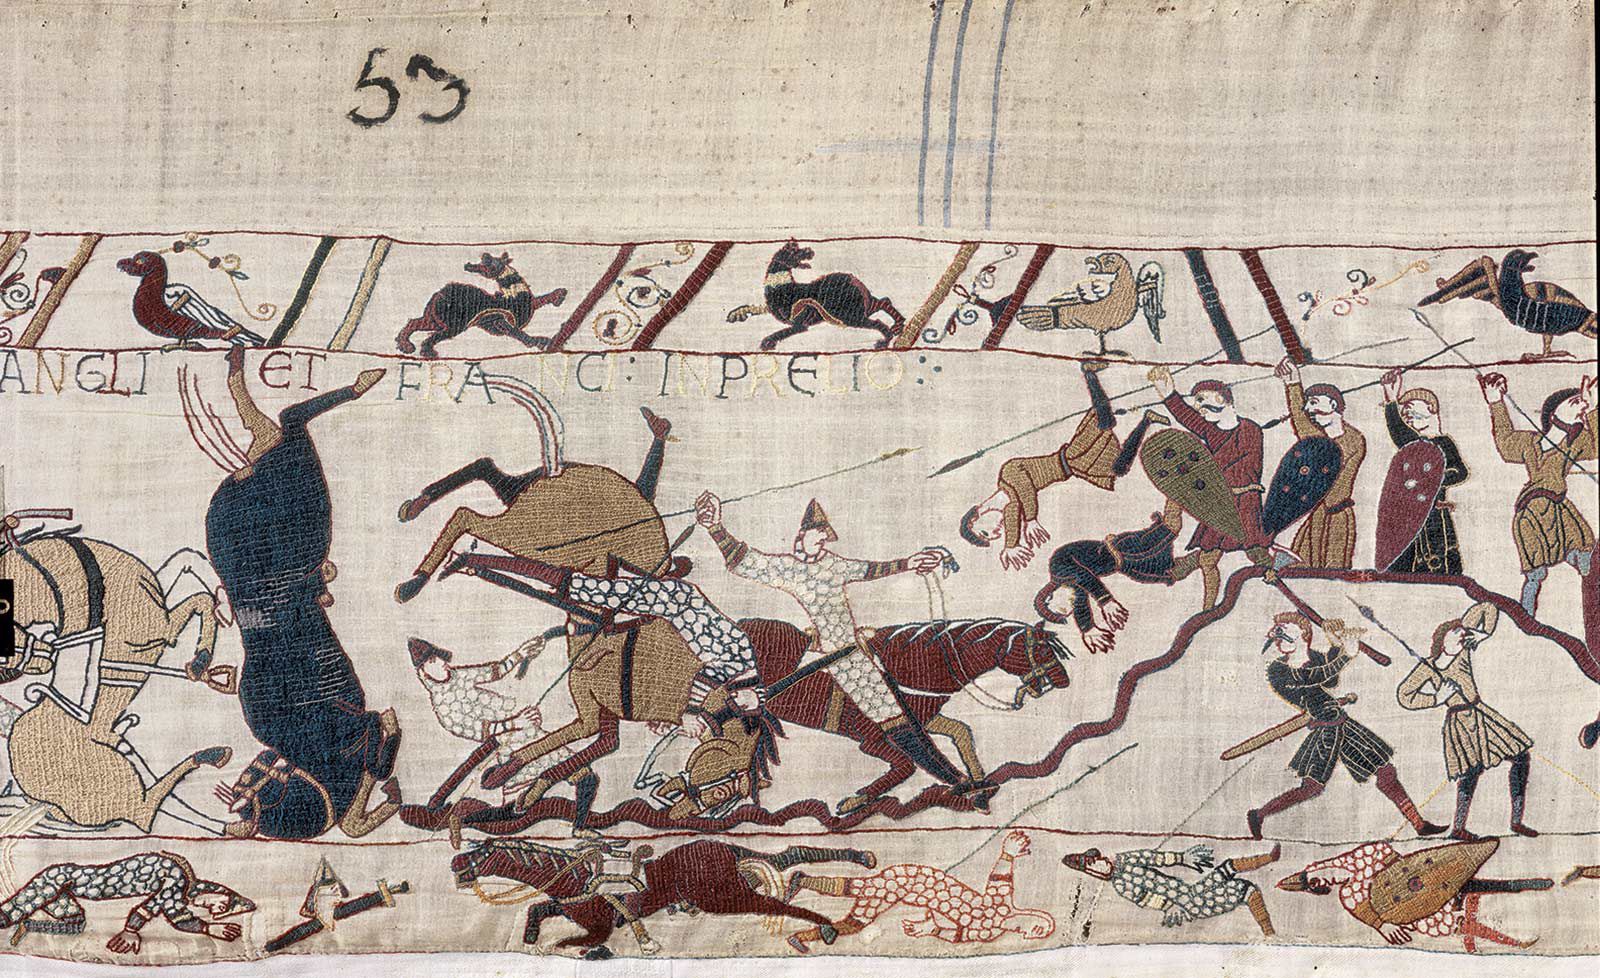 53
ANGLI ET FRANCI: IN PRELIO:·